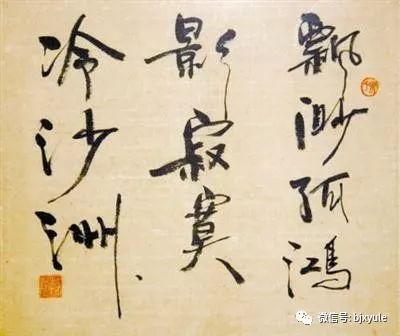 飄渺孤鴻
影寂寞
冷沙洲
微信号: bjxyule